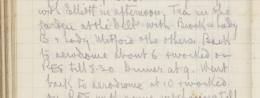 with Elliott in afternoon. Tea in the
garden at the with Brooke Lady
B & Lady Mitford & the others. Back
to aerodrome about 6 & worked on
till 8.30. Dinner at 9. Went
back to aerodrome at 10 & worked
on till